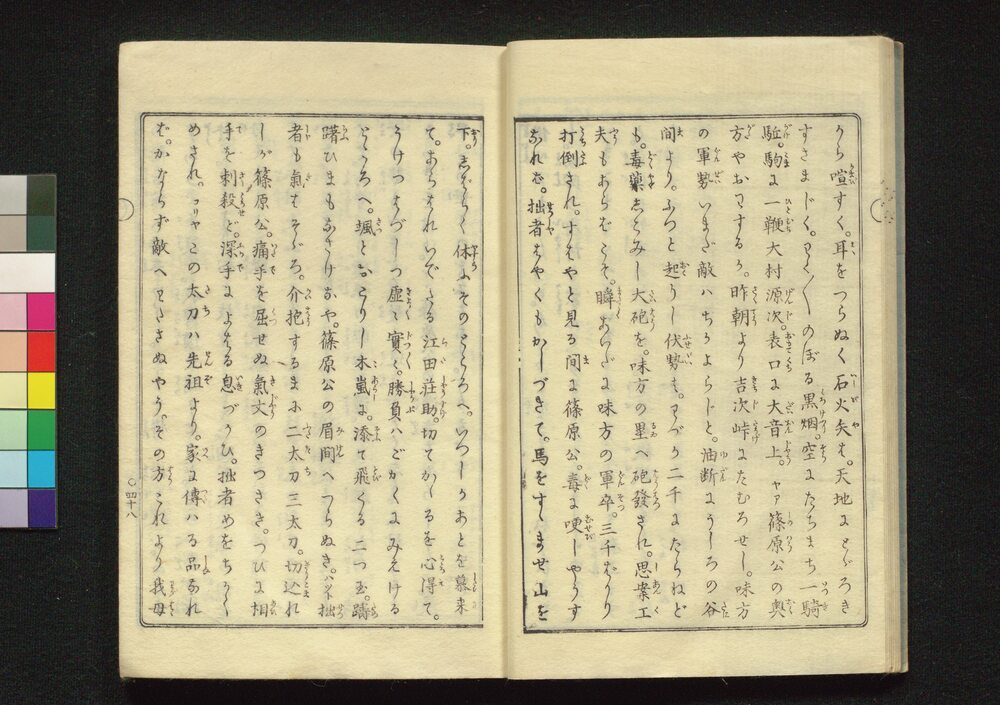 から喧すく。耳をつらぬく石火矢は。天地にとゞろき
すさまじく。むら〳〵のぼる黒烟。空にたちまち一騎
駈。駒に一鞭大村源次。表口に大音上。ヤァ篠原公の奥
方やおはするか。昨朝より吉次峠にたむろせし。味方
の軍勢いまだ敵ハちかよらじと。油断にうしろの谷
間より。ふつと起りし伏勢は。わづか二千にたらねど
も。毒藥しこみし大砲を。味方の塁へ砲發され。思案工
夫もあらばこそ。瞬あいだに味方の軍卒。三千ばかり
打倒され。すはやと見る間に篠原公。毒に哽しやうす
なれば。拙者はやくもかしづきて。馬をすゝませ山を
下。しばらく休ふそのところへ。いつしかあとを慕来
て。あらはれいでたる江田荘助。切てかゝるを心得て。
うけつはづしつ虚々實々。勝負ハどかくにみえける
ところへ。颯とおろしし木嵐に。添て飛くる二つ玉。躊
躇ひまもなさけなや。篠原公の眉間へつらぬき。ハット拙
者も氣もそゞろ。介抱するまに二太刀三太刀。切込れ
しが篠原公。痛手を屈せぬ氣丈のきつさき。つひに相
手を刺殺ど。深手によはる息づかひ。拙者めをちかく
めされ。コリヤこの太刀ハ先祖より。家に傳ハる品なれ
ば。かならず敵へわたさぬやう。その方これより我母
〇四十八